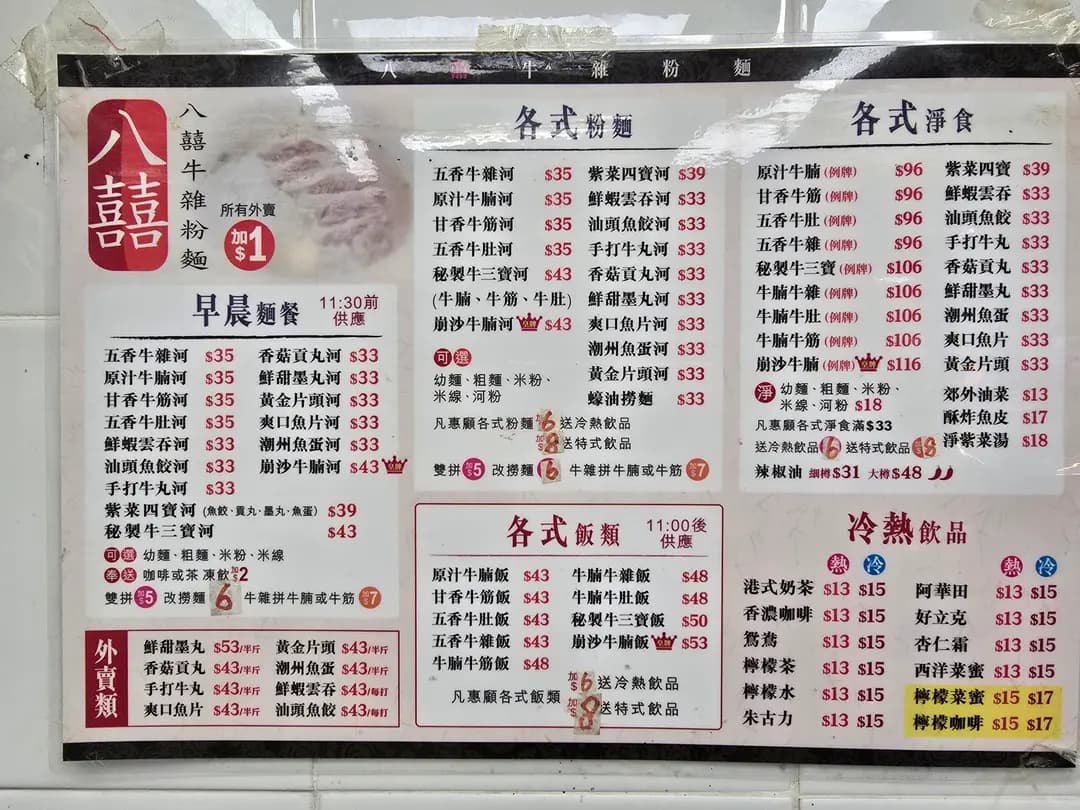 八囍牛雜粉麵
八囍
八囍牛雜粉麵
所有外賣
加$1
早晨麵餐 11:30前供應
五香牛雜河 $35 香菇貢丸河 $33
原汁牛腩河 $35 鮮甜墨丸河 $33
甘香牛筋河 $35 黃金片頭河 $33
五香牛肚河 $35 爽口魚片河 $33
鮮蝦雲吞河 $33 潮州魚蛋河 $33
汕頭魚餃河 $33 崩沙牛腩河 $43
手打牛丸河 $33
紫菜四寶河 (魚餃、貢丸、墨丸、魚蛋) $39
秘製牛三寶河 $43
可選 幼麵、粗麵、米粉、米線
奉送 咖啡或茶 凍飲加$2
雙拼加$5 改撈麵 6 牛雜拼牛腩或牛筋 加$7
外賣類
鮮甜墨丸 $53/半斤 黃金片頭 $43/半斤
香菇貢丸 $43/半斤 潮州魚蛋 $43/半斤
手打牛丸 $43/半斤 鮮蝦雲吞 $43/每打
爽口魚片 $43/半斤 汕頭魚餃 $43/每打
各式粉麵
五香牛雜河 $35 紫菜四寶河 $39
原汁牛腩河 $35 鮮蝦雲吞河 $33
甘香牛筋河 $35 汕頭魚餃河 $33
五香牛肚河 $35 手打牛丸河 $33
秘製牛三寶河 $43 香菇貢丸河 $33
(牛腩、牛筋、牛肚) 鮮甜墨丸河 $33
崩沙牛腩河 $43 爽口魚片河 $33
潮州魚蛋河 $33
黃金片頭河 $33
蠔油撈麵 $33
可選
幼麵、粗麵、米粉、
米線、河粉
凡惠顧各式粉麵 加$6 送冷熱飲品
加$8 送特式飲品
雙拼加$5 改撈麵 6 牛雜拼牛腩或牛筋 加$7
各式飯類 11:00後供應
原汁牛腩飯 $43 牛腩牛雜飯 $48
甘香牛筋飯 $43 牛腩牛肚飯 $48
五香牛肚飯 $43 秘製牛三寶飯 $50
五香牛雜飯 $43 崩沙牛腩飯 $53
牛腩牛筋飯 $48
凡惠顧各式飯類 加$6 送冷熱飲品
加$8 送特式飲品
各式淨食
原汁牛腩 (例牌) $96 紫菜四寶 $39
甘香牛筋 (例牌) $96 鮮蝦雲吞 $33
五香牛肚 (例牌) $96 汕頭魚餃 $33
五香牛雜 (例牌) $96 手打牛丸 $33
秘製牛三寶 (例牌) $106 香菇貢丸 $33
牛腩牛雜 (例牌) $106 鮮甜墨丸 $33
牛腩牛肚 (例牌) $106 潮州魚蛋 $33
牛腩牛筋 (例牌) $106 爽口魚片 $33
崩沙牛腩 (例牌) $116 黃金片頭 $33
淨 幼麵、粗麵、米粉、
米線、河粉 $18
郊外油菜 $13
酥炸魚皮 $17
淨紫菜湯 $18
凡惠顧各式淨食滿$33
送冷熱飲品 6 送特式飲品 $8
辣椒油 細樽 $31 大樽 $48
冷熱飲品
熱 冷 熱 冷
港式奶茶 $13 $15 阿華田 $13 $15
香濃咖啡 $13 $15 好立克 $13 $15
鴛鴦 $13 $15 杏仁霜 $13 $15
檸檬茶 $13 $15 西洋菜蜜 $13 $15
檸檬水 $13 $15 檸檬菜蜜 $15 $17
朱古力 $13 $15 檸檬咖啡 $15 $17